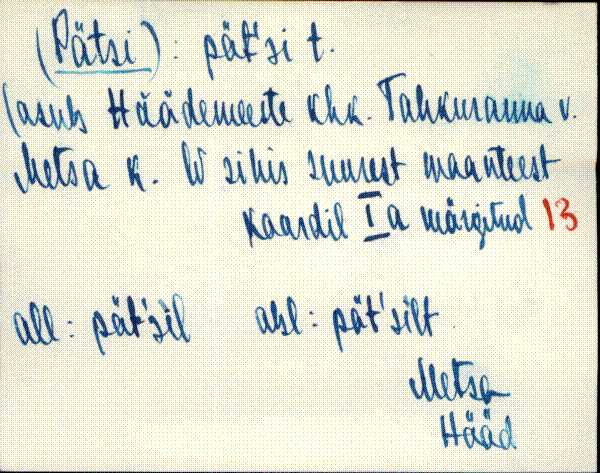 (Pätsi) : pät'si t.
(asub Häädemeeste khk. Tahkuranna v.
Metsa k. W sihis suurest maanteest
kaardil Ia märgitud 13
all : pät'sil abl : pät'silt
Metsa
Hääd